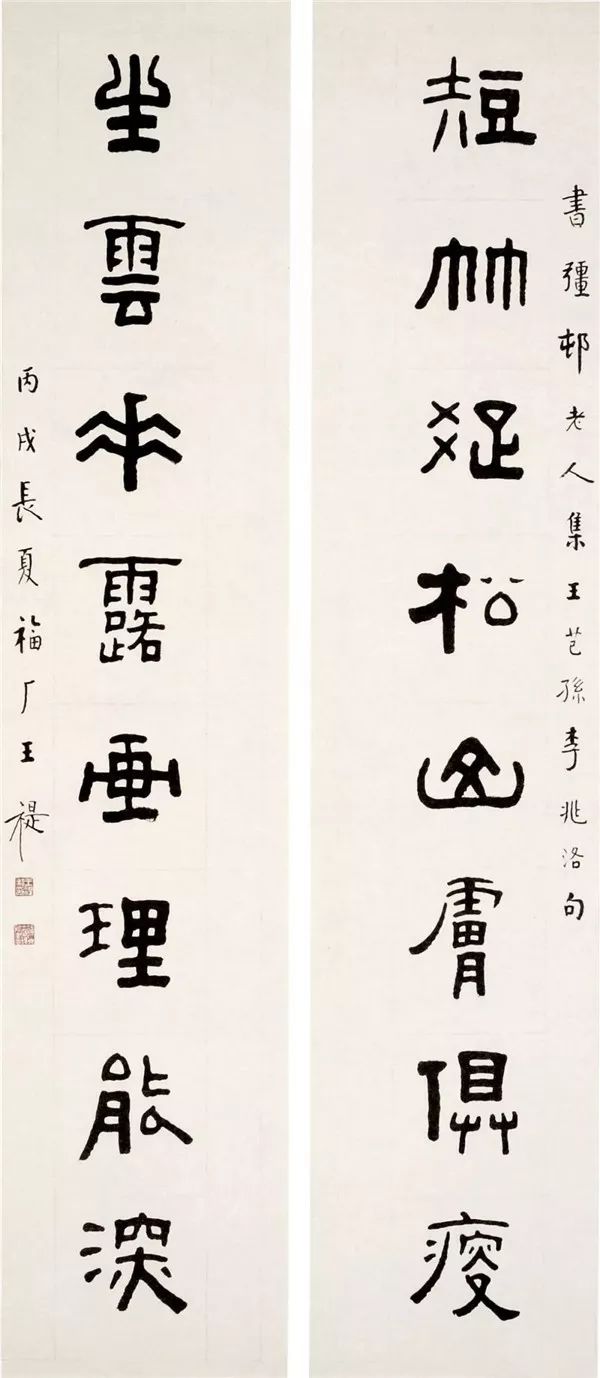 書彊邨老人集王芑孫李兆洛句
短竹疏松山膚俱瘦
坐雲垂露画理能深
丙戌長夏福厂王禔